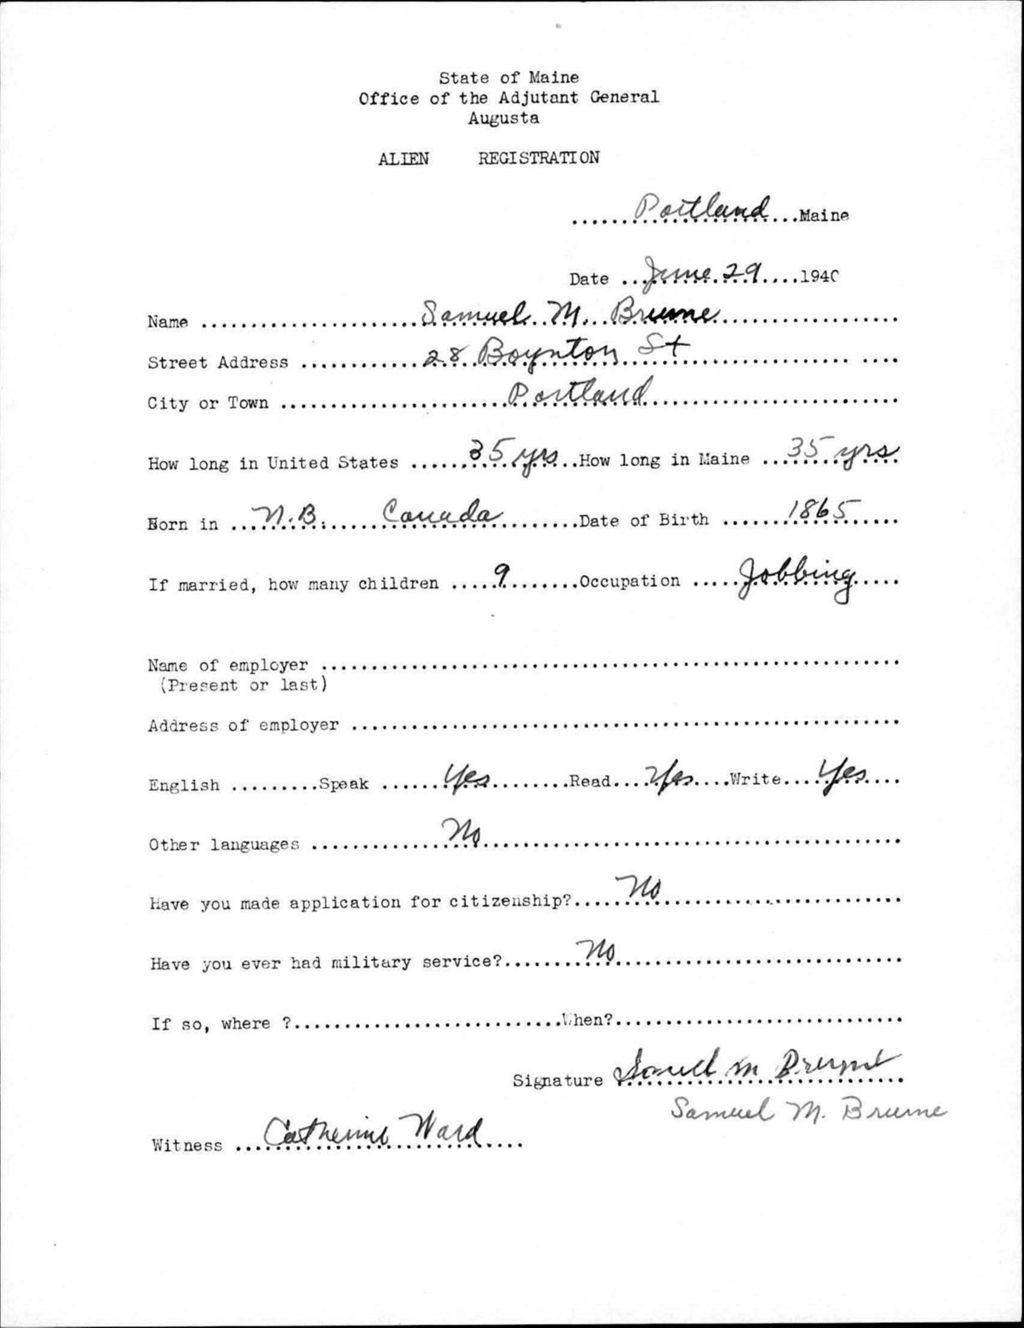 State of Maine
Office of the Adjutant General
Augusta
ALIEN REGISTRATION
......Portland...Maine
Date ...June 29....1940
Name ......................Samuel M. Brune..................
Street Address ............28 Boynton St................... ....
City or Town ......................Portland.........................
How long in United States ......35 yrs...How long in Maine ...35 yrs
Born in ...N.B. Canada.........Date of Birth .......1865.....
If married, how many children .....9.......Occupation .....Jobbing.....
Name of employer ..........................................................
(Present or last)
Address of employer .......................................................
English .........Speak ......Yes........Read....Yes....Write....Yes....
Other languages ..............No..........................................
Have you made application for citizenship?......No........................
Have you ever had military service?........No.............................
If so, where ?...........................When?.............................
Signature
Samuel M. Brune
Witness ...Catherine Ward....